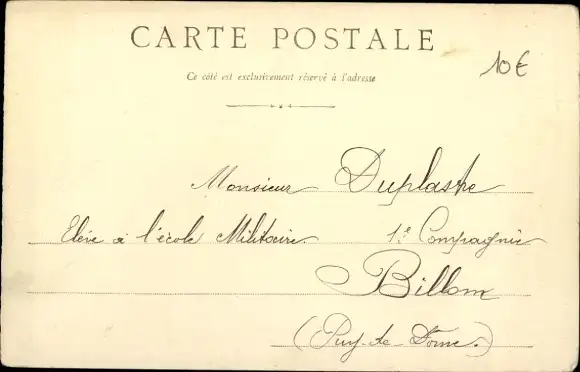 CARTE POSTALE
10€
Ce côté est exclusivement réservé à l'adresse
Monsieur Duplastre
Elève à l'école Militaire. 1re Compagnie
Billom
(Puy-de-Dôme.)